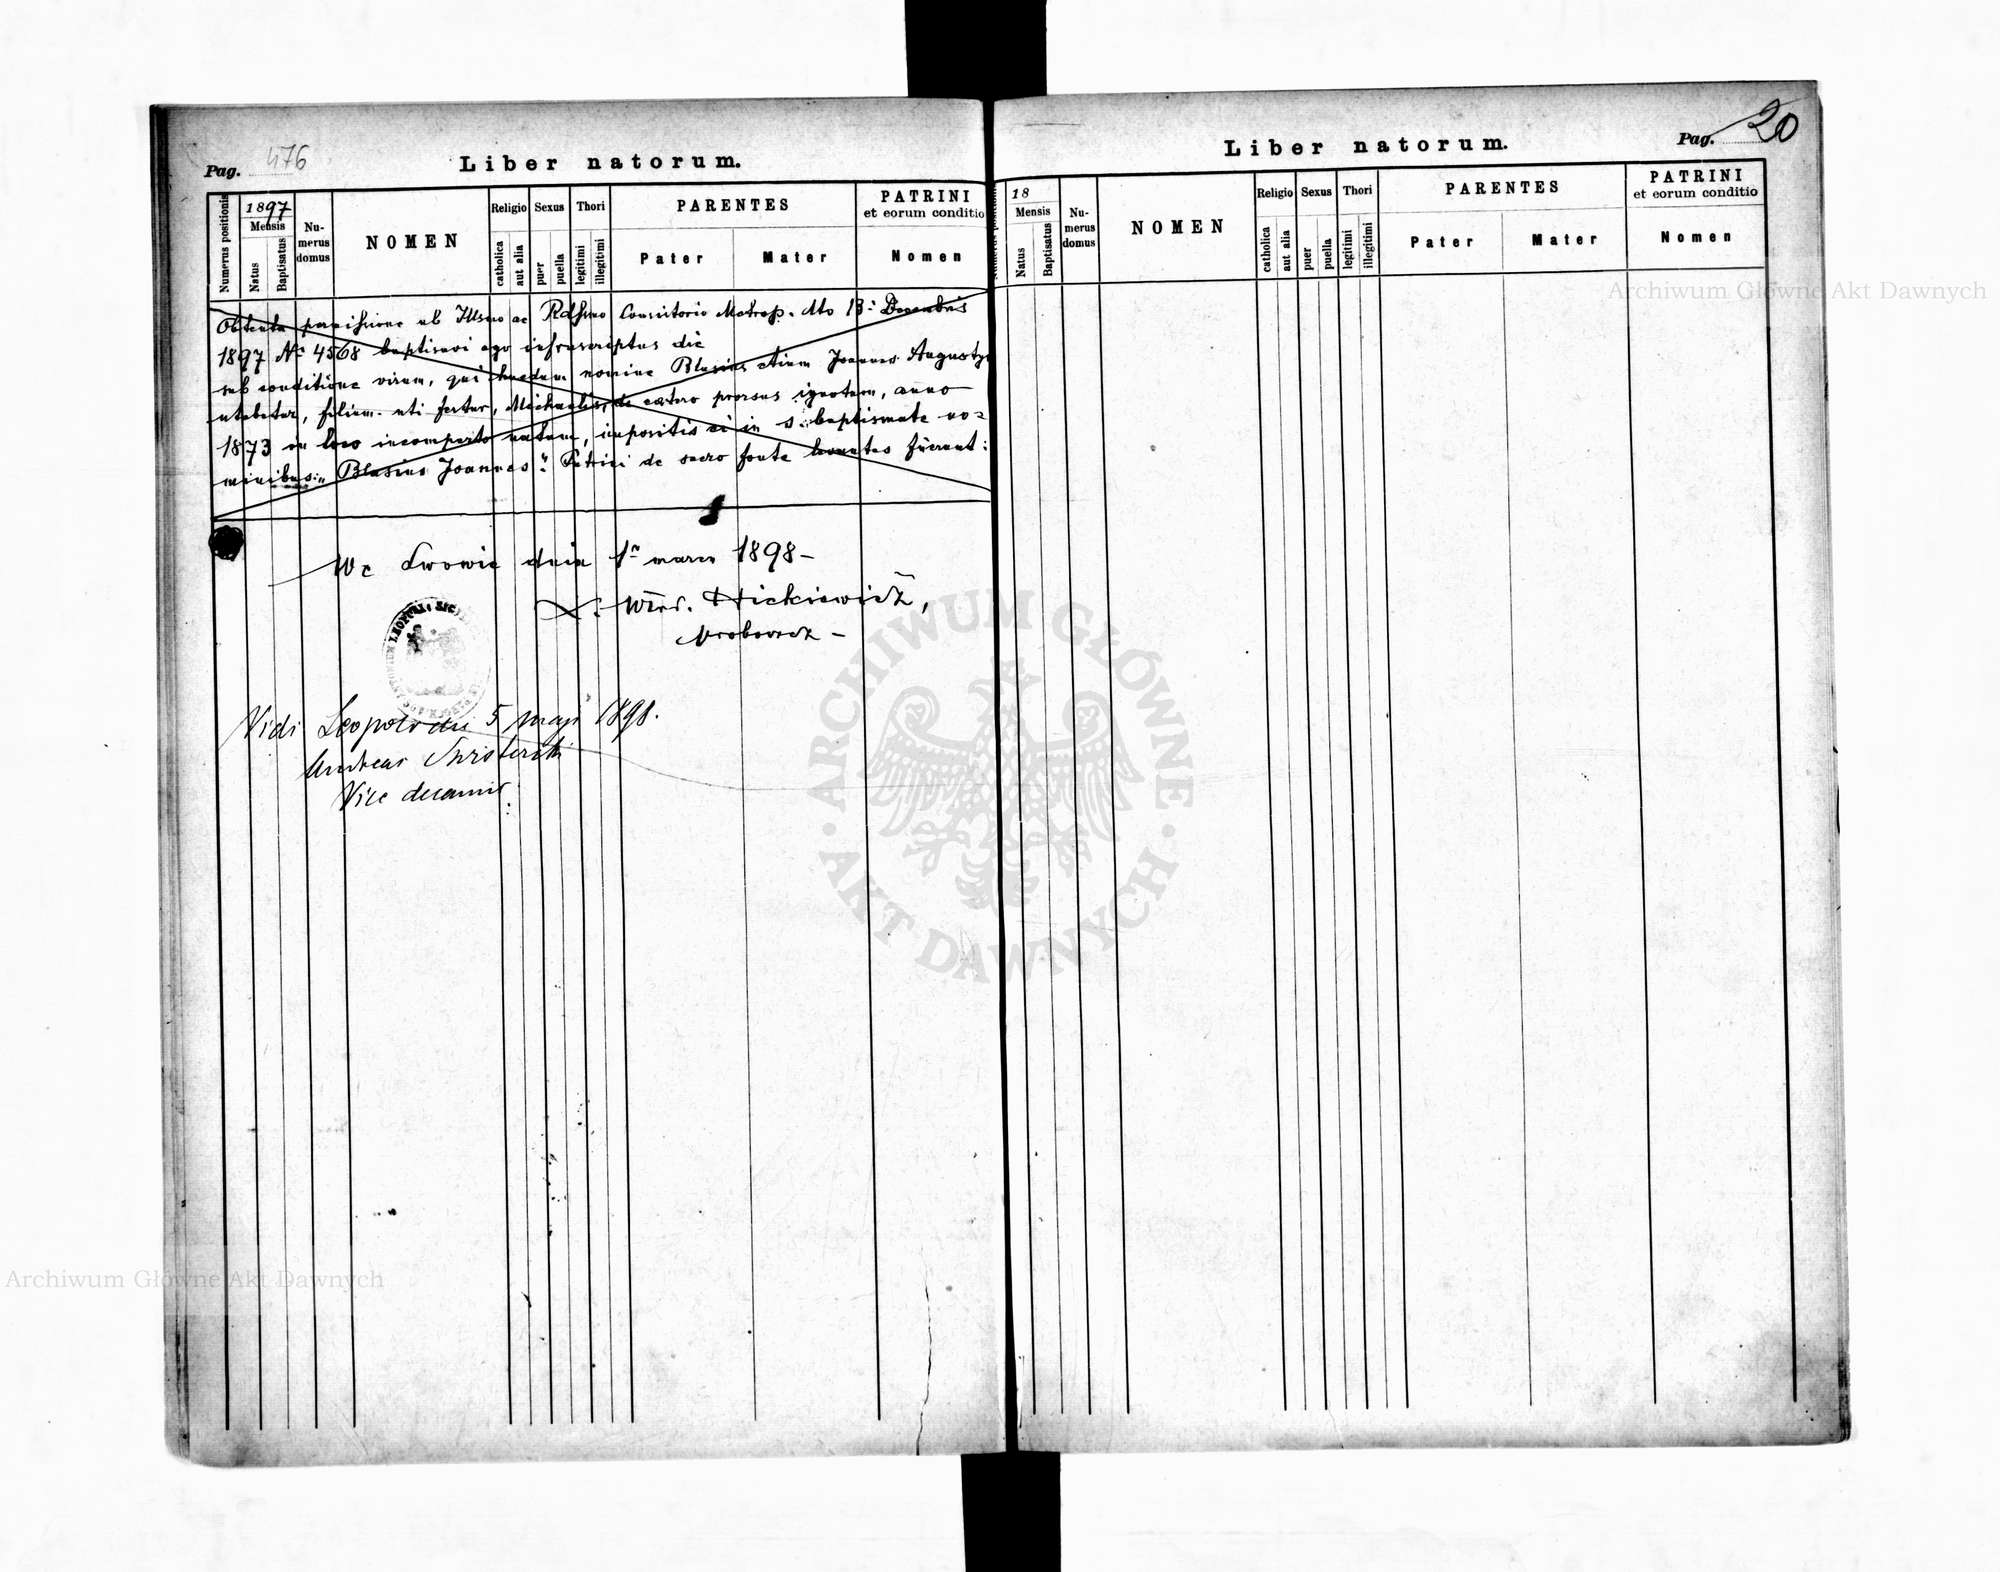 Pag. 476
Liber natorum.
Numerus positionis
1897
Mensis
Natus
Baptisatus
Numerus domus
NOMEN
Religio
catholica
aut alia
Sexus
puer
puella
Thori
legitimi
illegitimi
PARENTES
Pater
Mater
PATRINI
et eorum conditio
Nomen
Obtenta permissione ab Illsmo ac Rdssmo Consistorio Metrop. dto 13: Decembris
1897 No 4568 baptisavi ego infrascriptus die
sub conditione virum, qui hucdum nomine Blasius etiam Joannes Augustyn
utebatur, filium uti fertur, Michaelis, de cætero prorsus ignotum, anno
1873 in loco incomperto natum, impositis ei in s. baptismate no=
minibus: „Blasius Joannes“. Patrini de sacro fonte levantes fuerunt:
We Lwowie dnia 1go marca 1898 –
X.
Proboszcz –
Vidi Leopoli die 5 maji 1898.
Andreas
Vice decanus.
Pag. 20
Liber natorum.
Numerus positionis
18
Mensis
Natus
Baptisatus
Numerus domus
NOMEN
Religio
catholica
aut alia
Sexus
puer
puella
Thori
legitimi
illegitimi
PARENTES
Pater
Mater
PATRINI
et eorum conditio
Nomen
Archiwum Główne Akt Dawnych
ARCHIWUM GŁÓWNE
AKT DAWNYCH
Archiwum Główne Akt Dawnych